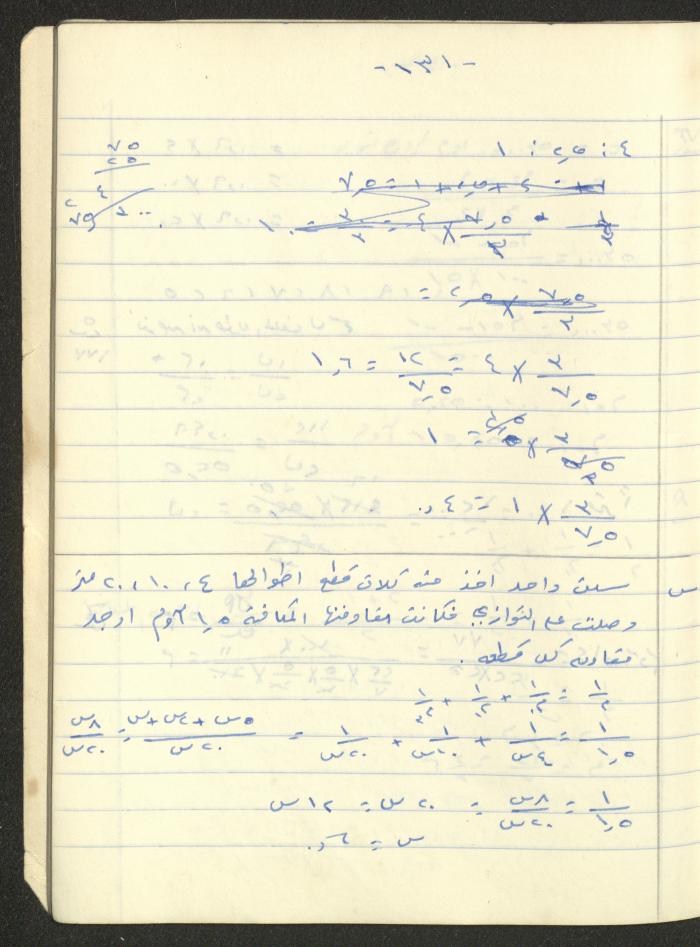 -١٣١-
٤ : ٢,٥ : ١
٧٥
٢٥
٣/٧,٥ × ٤ = ١٢/٧,٥ = ١,٦
٣/٧,٥ × ٢,٥ = ١
٣/٧,٥ × ١ = ٤,.
س سلك واحد اخذ منه ثلاث قطع اطوالها ٤ ، ١٠ ، ٢٠ متر
وصلت على التوازي فكانت مقاومتها المكافئة ١,٥ أوم اوجد
مقاومة كل قطعه .
١/م = ١/م١ + ١/م٢ + ١/م٣
١/١,٥ = ١/٤س + ١/١٠س + ١/٢٠س = ٥س + ٢س + س/٢٠س = ٨س/٢٠س
١/١,٥ = ٨س/٢٠س = ٢٠س = ١٢س
س = ٦,.